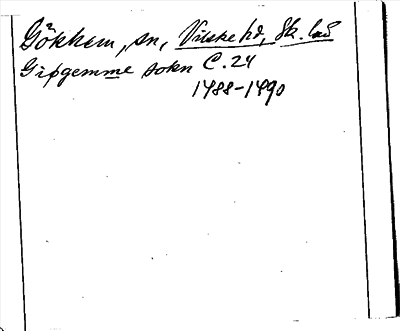 Gökhem, sn, Vilske hd, Sk. län
Gipgemme sokn C. 24
1488-1490